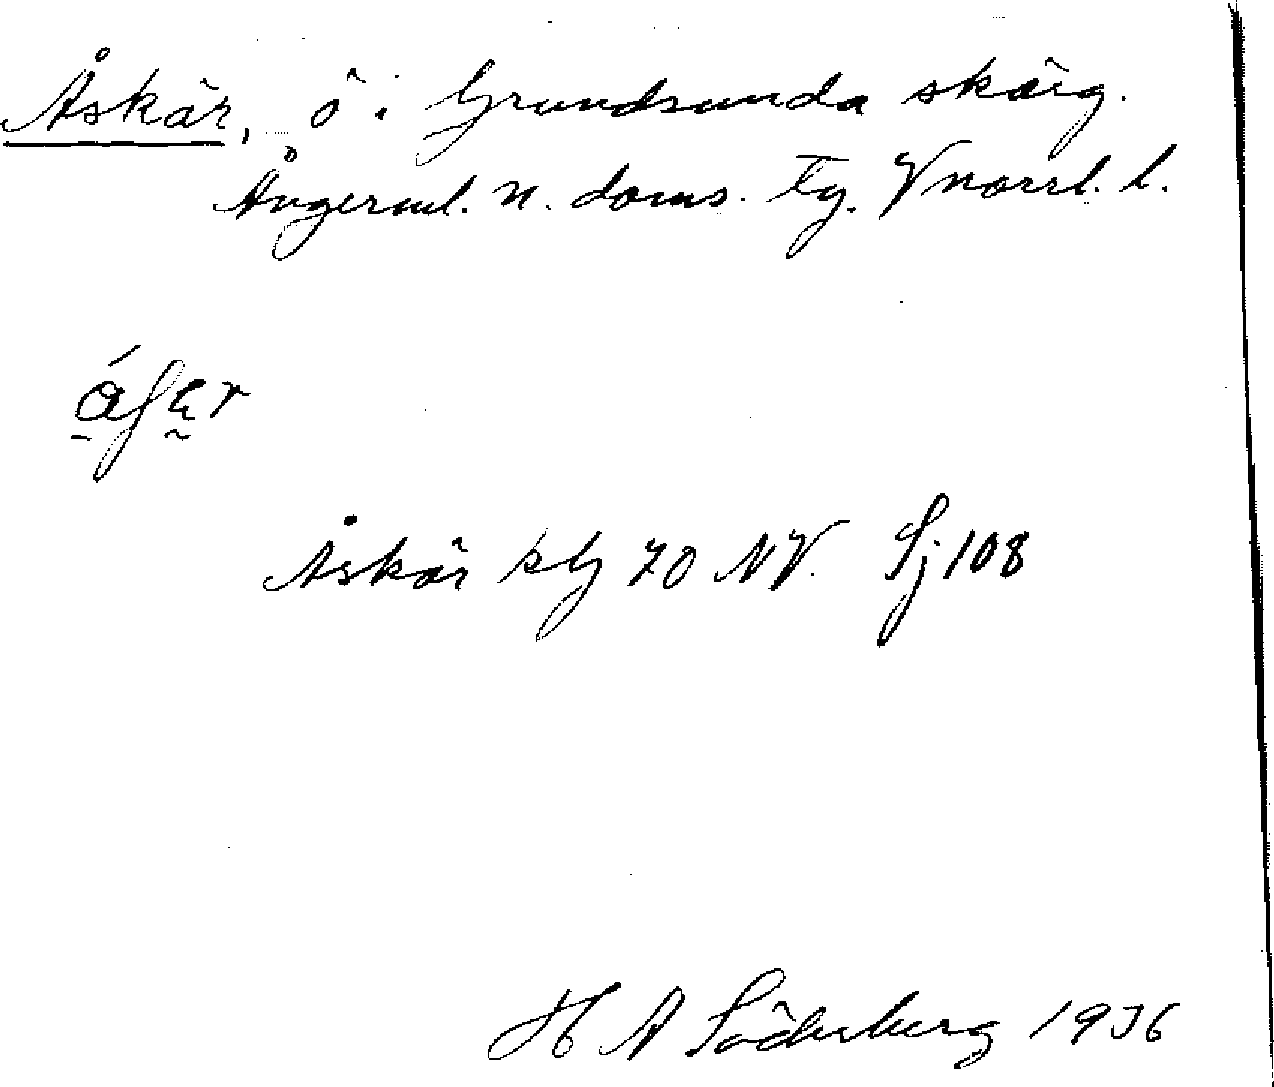 Åskär, ö i Grundsunda skärg.
Ångerml. n. doms. Tg. Vnorrl. l.
Åskär klg 70 NV. Sj 108
H A Söderberg 1936